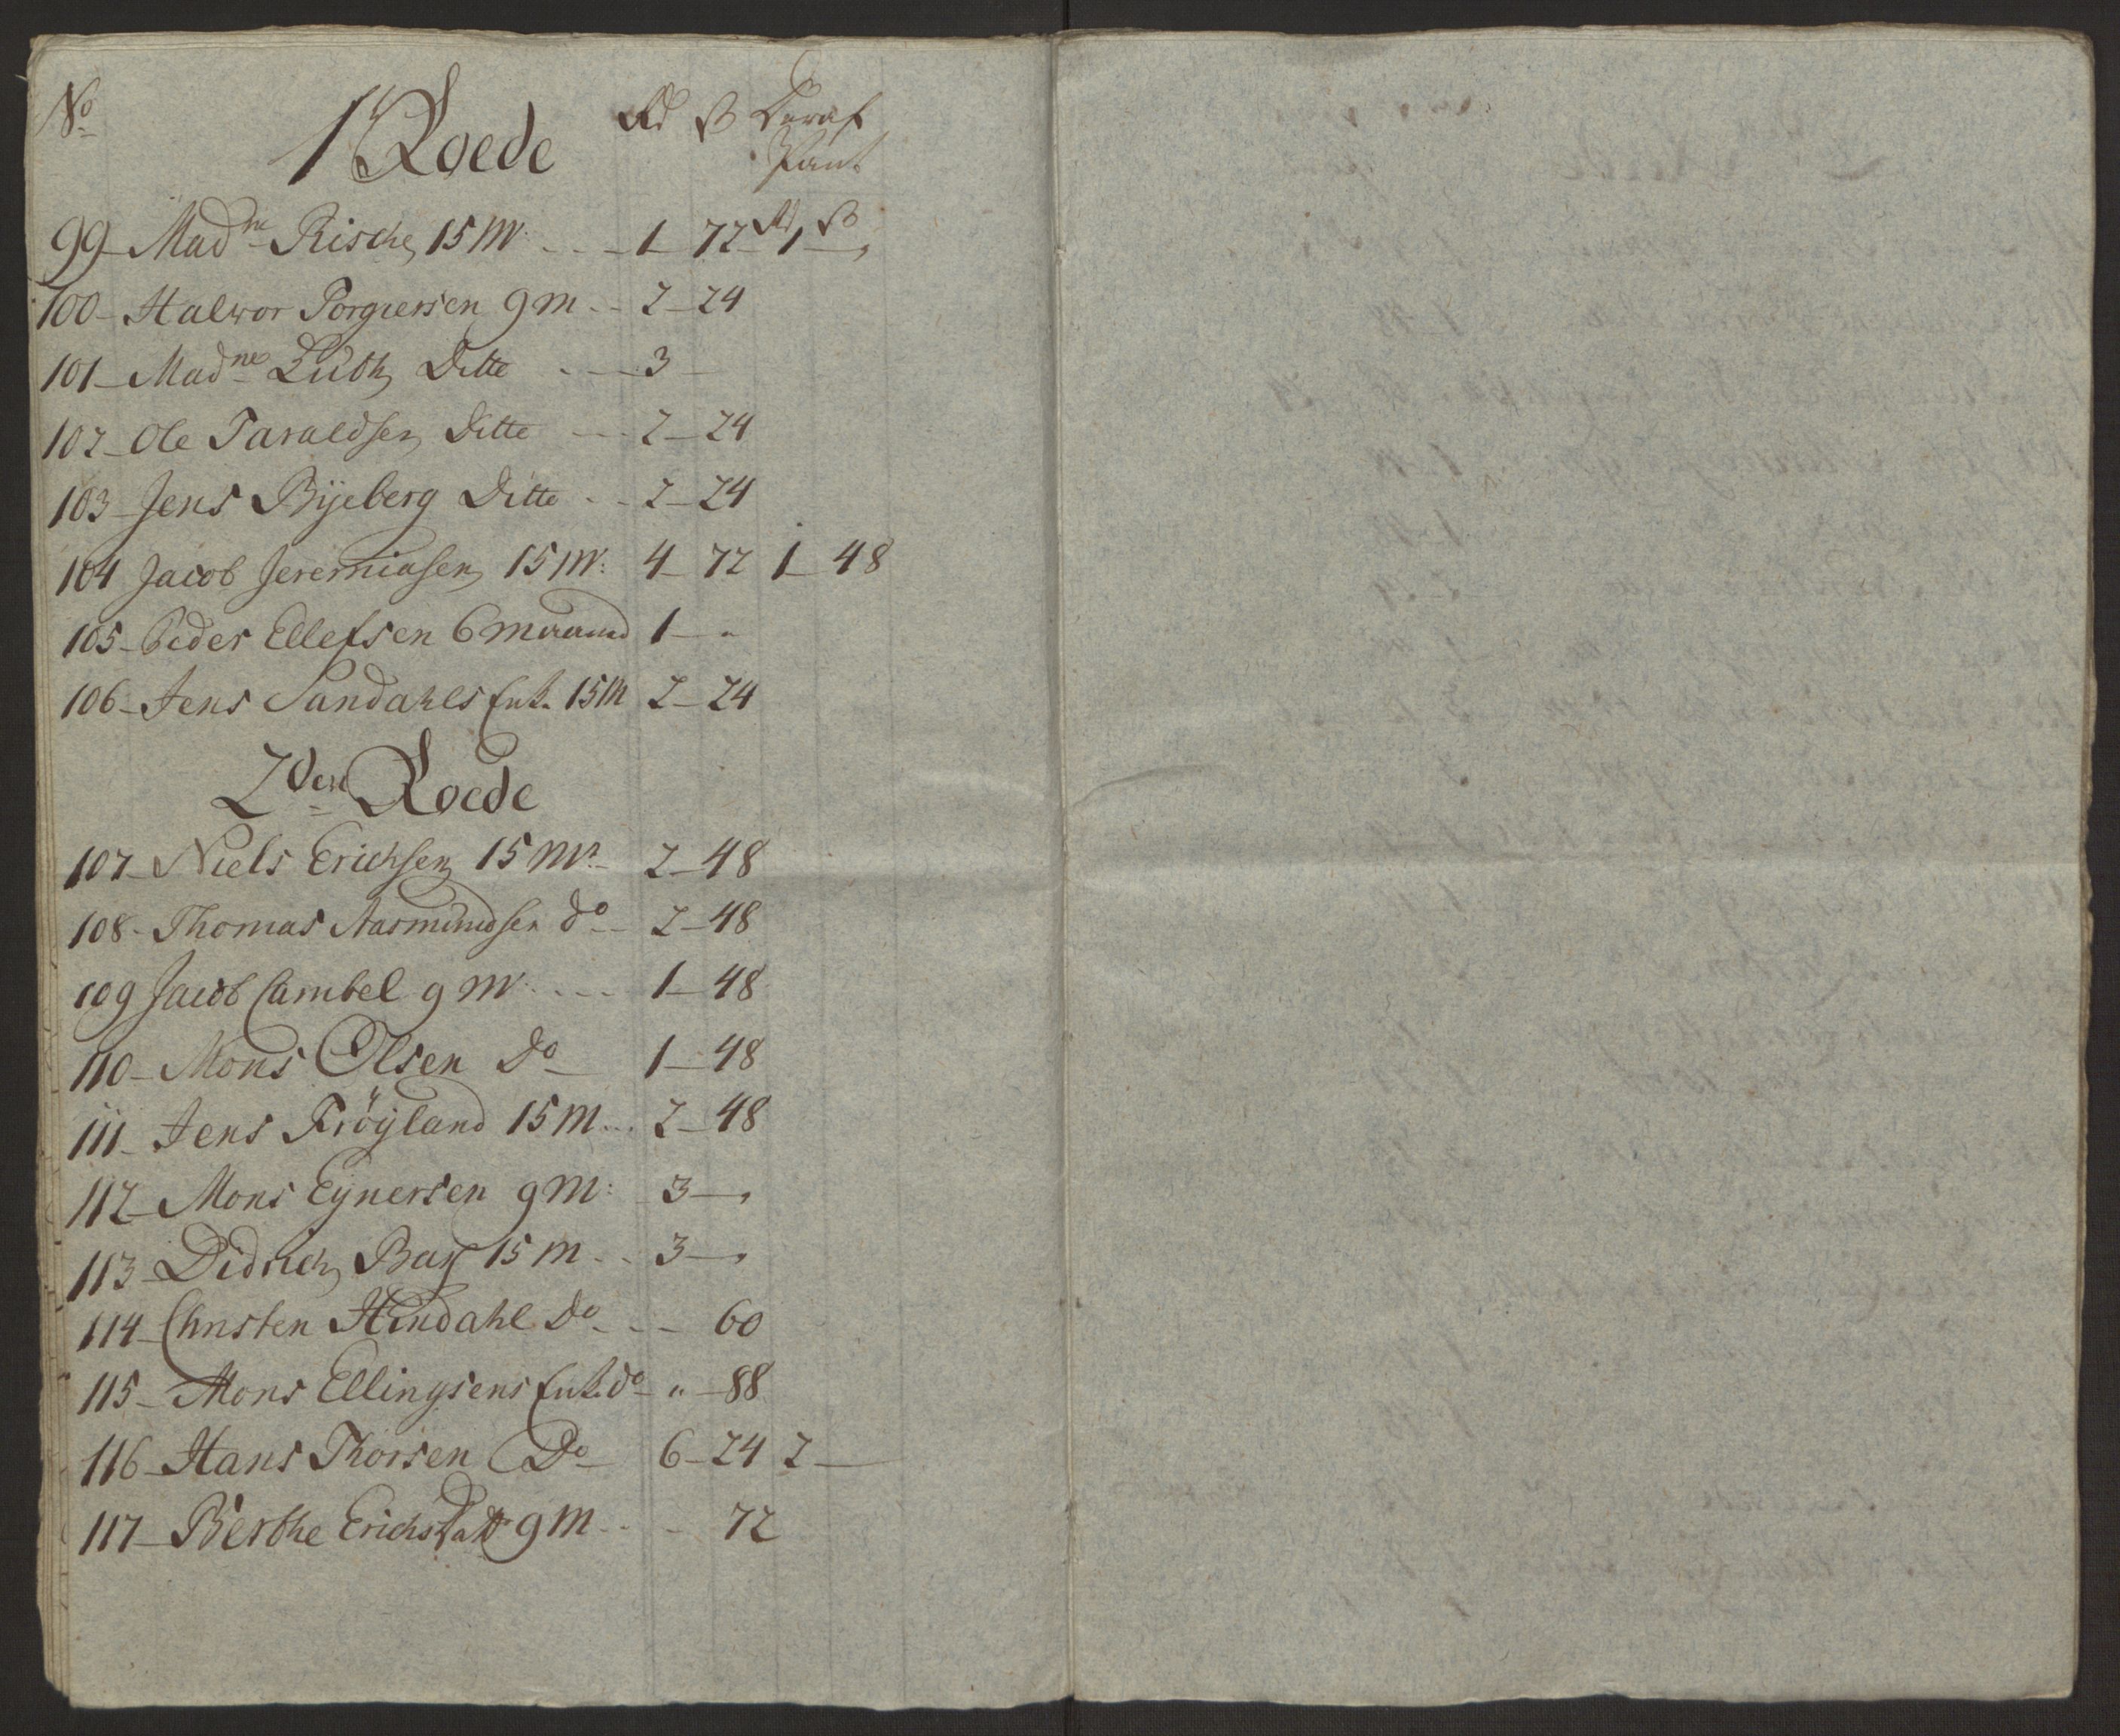 No 1 Roede Rd ß Deraf
Pant
99 Madme Rische 15 M: 1 72 Rd 1 ß „
100 Halvor Torgiersen 9 M 2 24
101 Madme Luth Ditte 3
102 Ole Taraldsen Ditte 2 24
103 Jens Bijeberg Ditte 2 24
104 Jacob Jeremiasen 15 M: 4 72 1 48
105 Peder Ellefsen 6 Maaned 1 „
106 Jens Sandahls Enk. 15 M 2 24
2den Roede
107 Niels Erichsen 15 M: 2 48
108 Thomas Aasmundsen do 2 48
109 Jacob Cambel 9 M: 1 48
110 Mons Olsen do 1 48
111 Jens Fröyland 15 M 2 48
112 Mons Eynersen 9 M: 3 „
113 Didrich 15 M 3 „
114 Christen Hindahl do 60
115 Mons Ellingsens Enk. do „ 88
116 Hans Thorsen Do 6 24 2
117 Berthe Erichsdatt 9 M 72